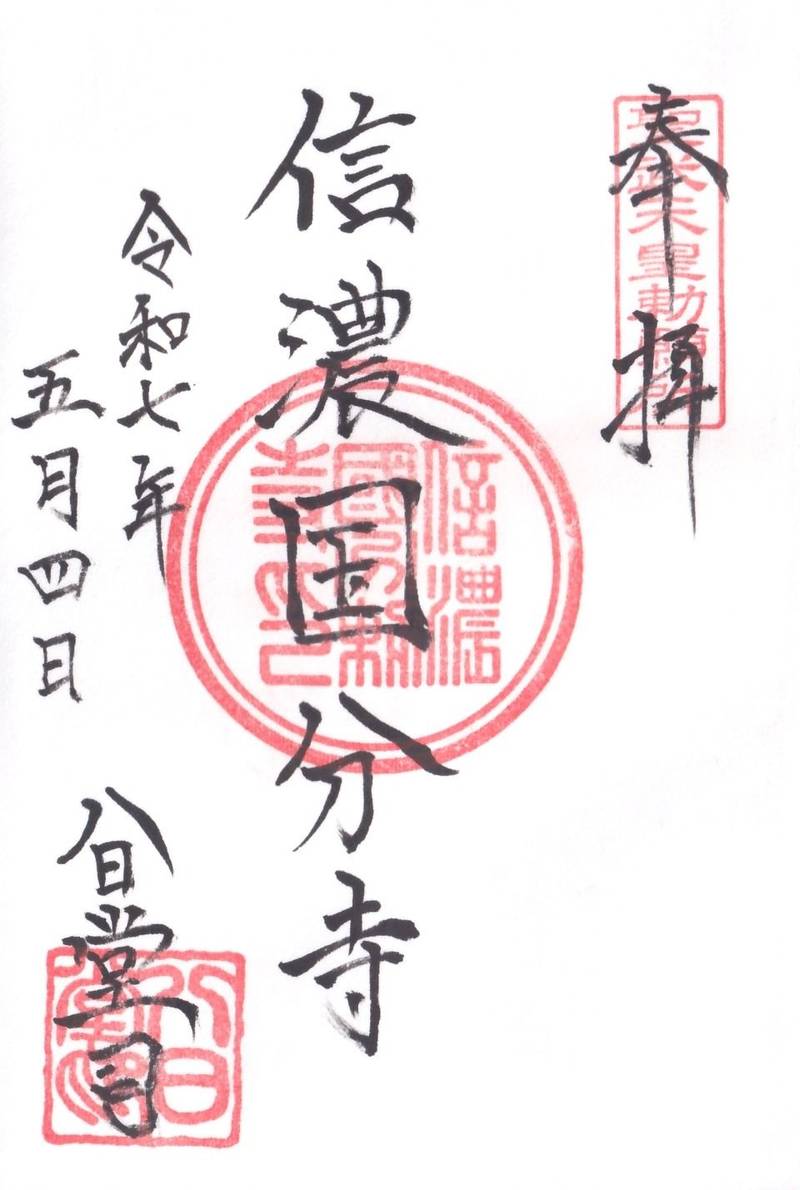 奉拝
聖武天皇勅願所
信濃国分寺
信濃
國分寺
令和七年
五月四日
八日堂
八日
堂印